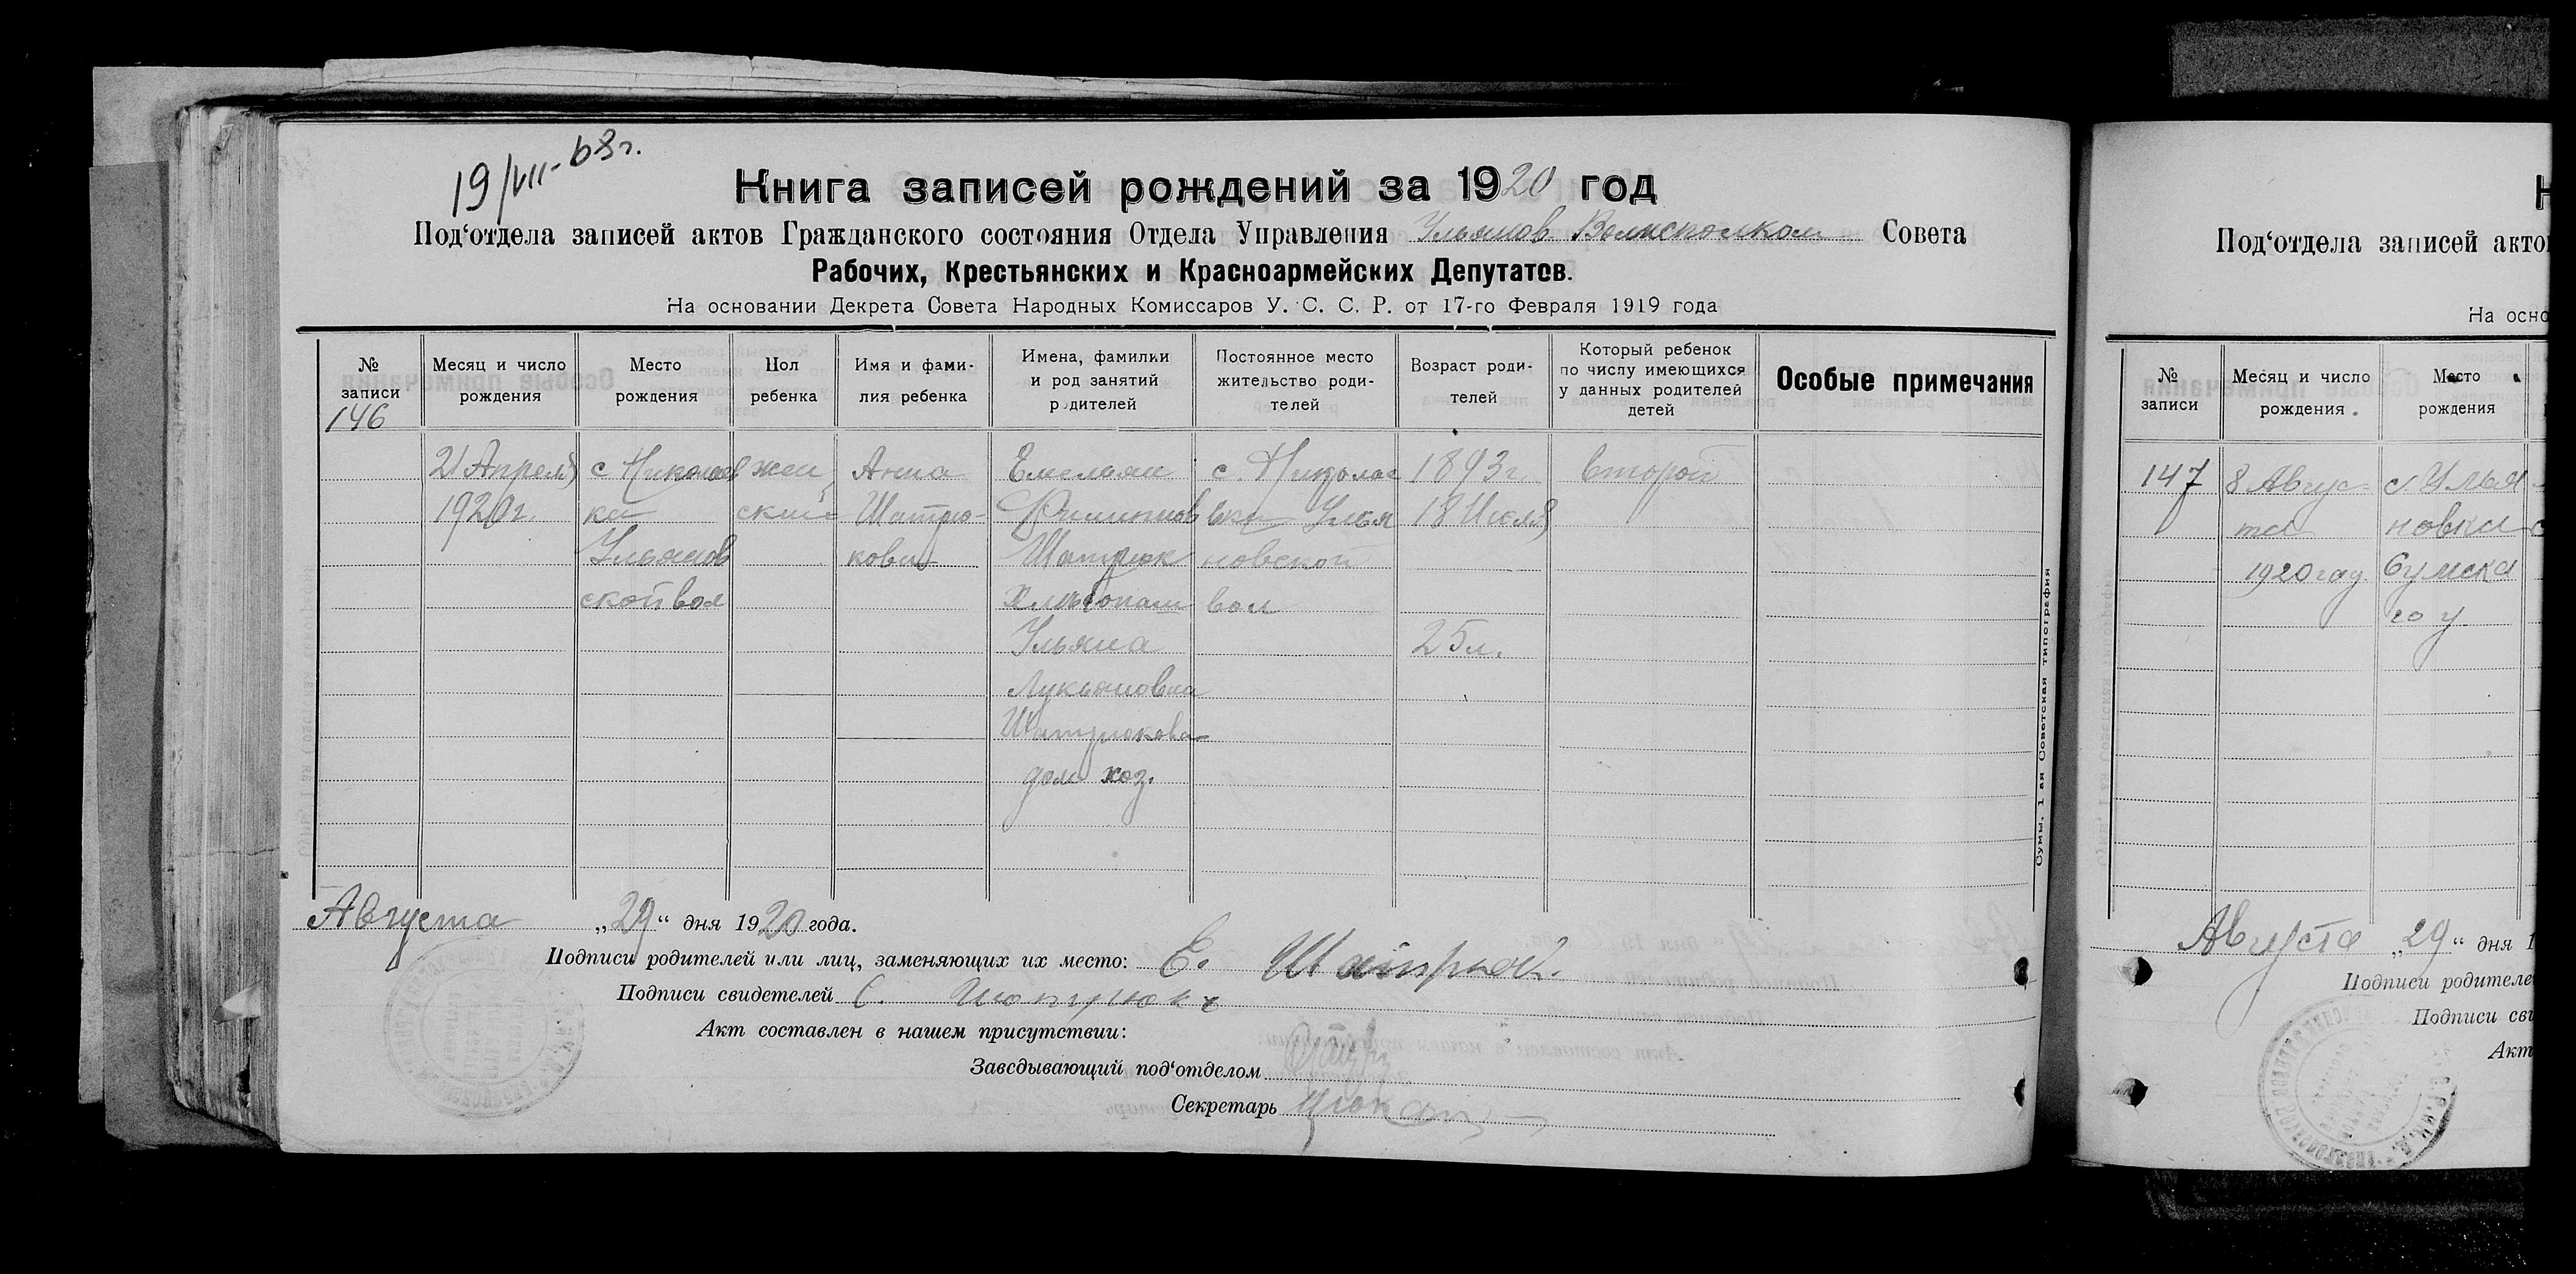 19/VII-63г.
Книга записей рождений за 1920 год
Под‘отдела записей актов Гражданского состояния Отдела Управления Ульянов. Волисполком Совета
Рабочих, Крестьянских и Красноармейских Депутатов.
На основании Декрета Совета Народных Комиссаров У. С. С. Р. от 17-го Февраля 1919 года
№ записи
Месяц и число рождения
Место рождения
Пол ребенка
Имя и фами- лия ребенка
Имена, фамилки и род занятий родителей
Постоянное место жительство роди- телей
Возраст роди- телей
Который ребенок по числу имеющихся у данных родителей детей
Особые примечания
146
21 Апреля с Николаев жен Анна Емельян с. Николае 1893г. второй
1920г. ка ский Шатрю- Филиппов вка Улья 18 Июля
Ульянов кова Шатрюк новской
ской вол Хлебопаш вол
Ульяна 25 л.
Лукьяновна
Шатрюкова
дом хоз.
Августа „29“ дня 1920 года.
Подписи родителей или лиц, заменяющих их место: Е. Шатрюк.
Подписи свидетелей С. Шатрюк
Акт составлен в нашем присутствии:
Заведывающий под‘отделом
Секретарь
Сумы, 1 ая Советская типография
Под‘отдела записей акто
На осно
№ записи
Месяц и число рождения
Место рождения
147 8 Авгус- с. Улья
та новка
1920 год. Сумска
го у
Августа „29“ дня 1
Подписи родителе
Подписи сви
Акт